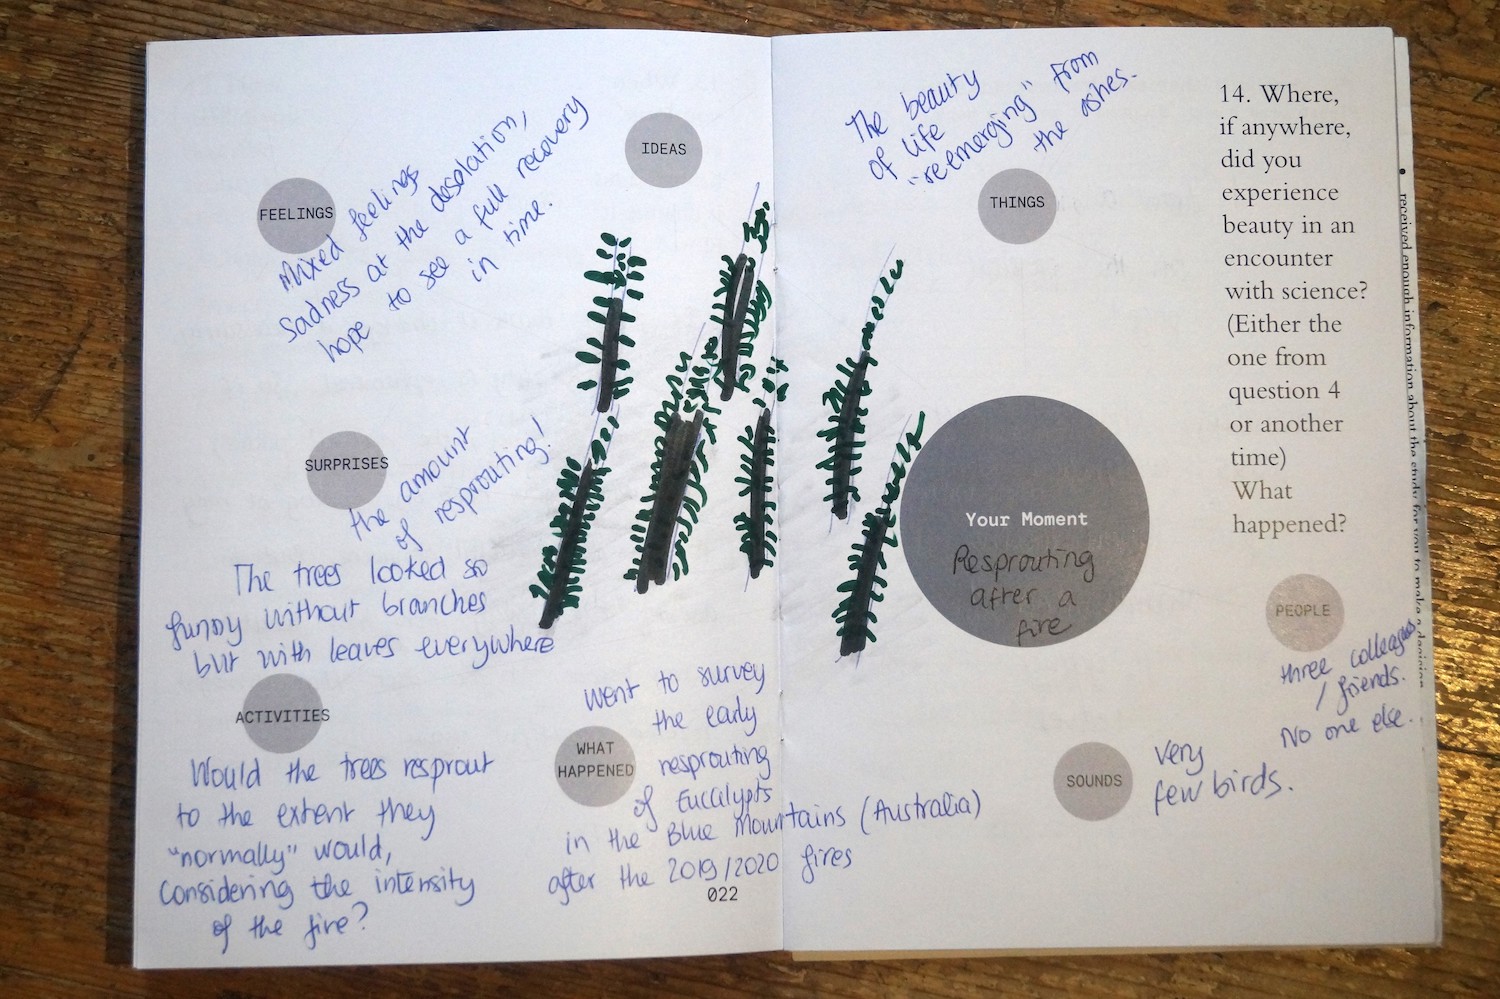 FEELINGS
Mixed feelings
Sadness at the desolation,
hope to see a full recovery
in time.
IDEAS
SURPRISES
the amount
of resprouting!
The trees looked so
funny without branches
but with leaves everywhere
ACTIVITIES
Would the trees resprout
to the extent they
"normally" would,
considering the intensity
of the fire?
WHAT
HAPPENED
Went to survey
the early
resprouting
of Eucalypts
in the Blue Mountains (Australia)
after the 2019/2020 fires
022
The beauty
of life
"reemerging" from
the ashes.
THINGS
Your Moment
Resprouting
after a
fire
PEOPLE
three colleagues
/ friends.
No one else.
SOUNDS
Very
few birds.
14. Where,
if anywhere,
did you
experience
beauty in an
encounter
with science?
(Either the
one from
question 4
or another
time)
What
happened?
received enough information about the study for you to make a decision